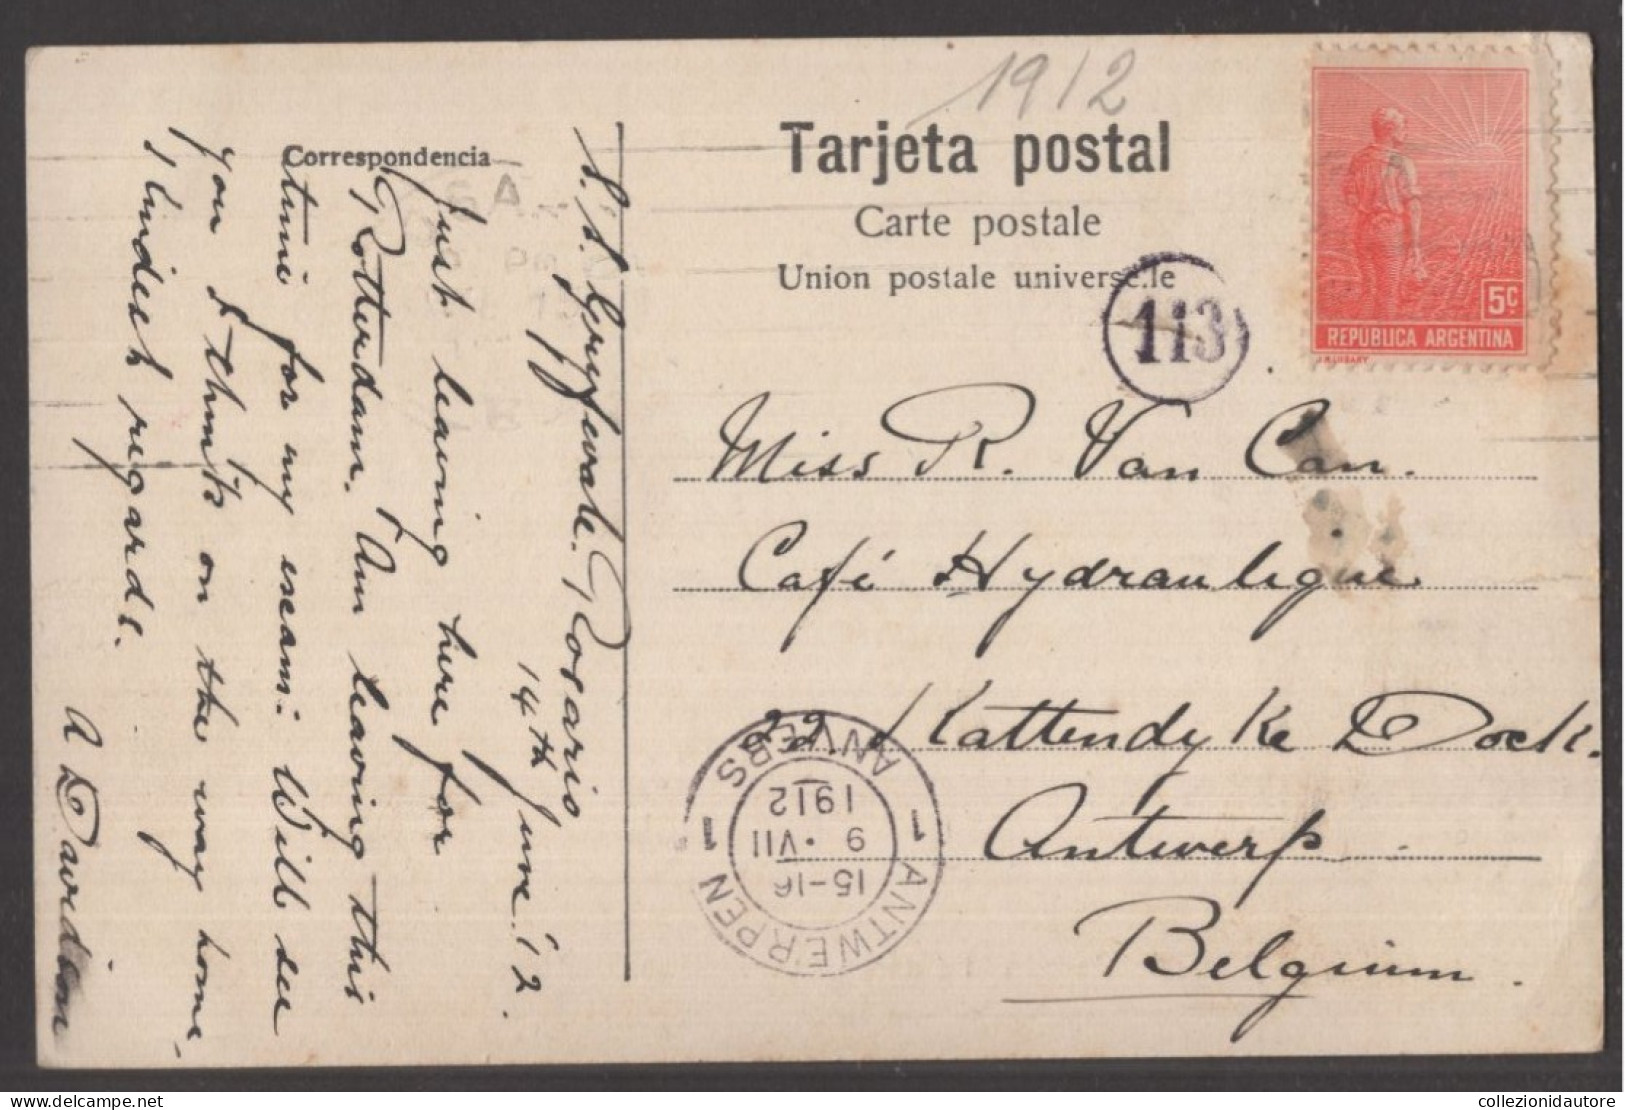 1912
Tarjeta postal
Carte postale
Union postale universe.le
Correspondencia
113
5c
REPUBLICA ARGENTINA
S.S. Rosario
14th June '12.
Just leaving here for
Rotterdam. Am leaving this
time for my exam: Will see
you I think on the way home.
Kindest regards.
A Davidson
Miss R. Van Can.
Café Hydraulique
22. Kattendyke Dock.
Antwerp
Belgium.
1 ANTWERPEN 1 ANVERS
15-16
9 . VII
1912
collezionidautore
www.delcampe.net